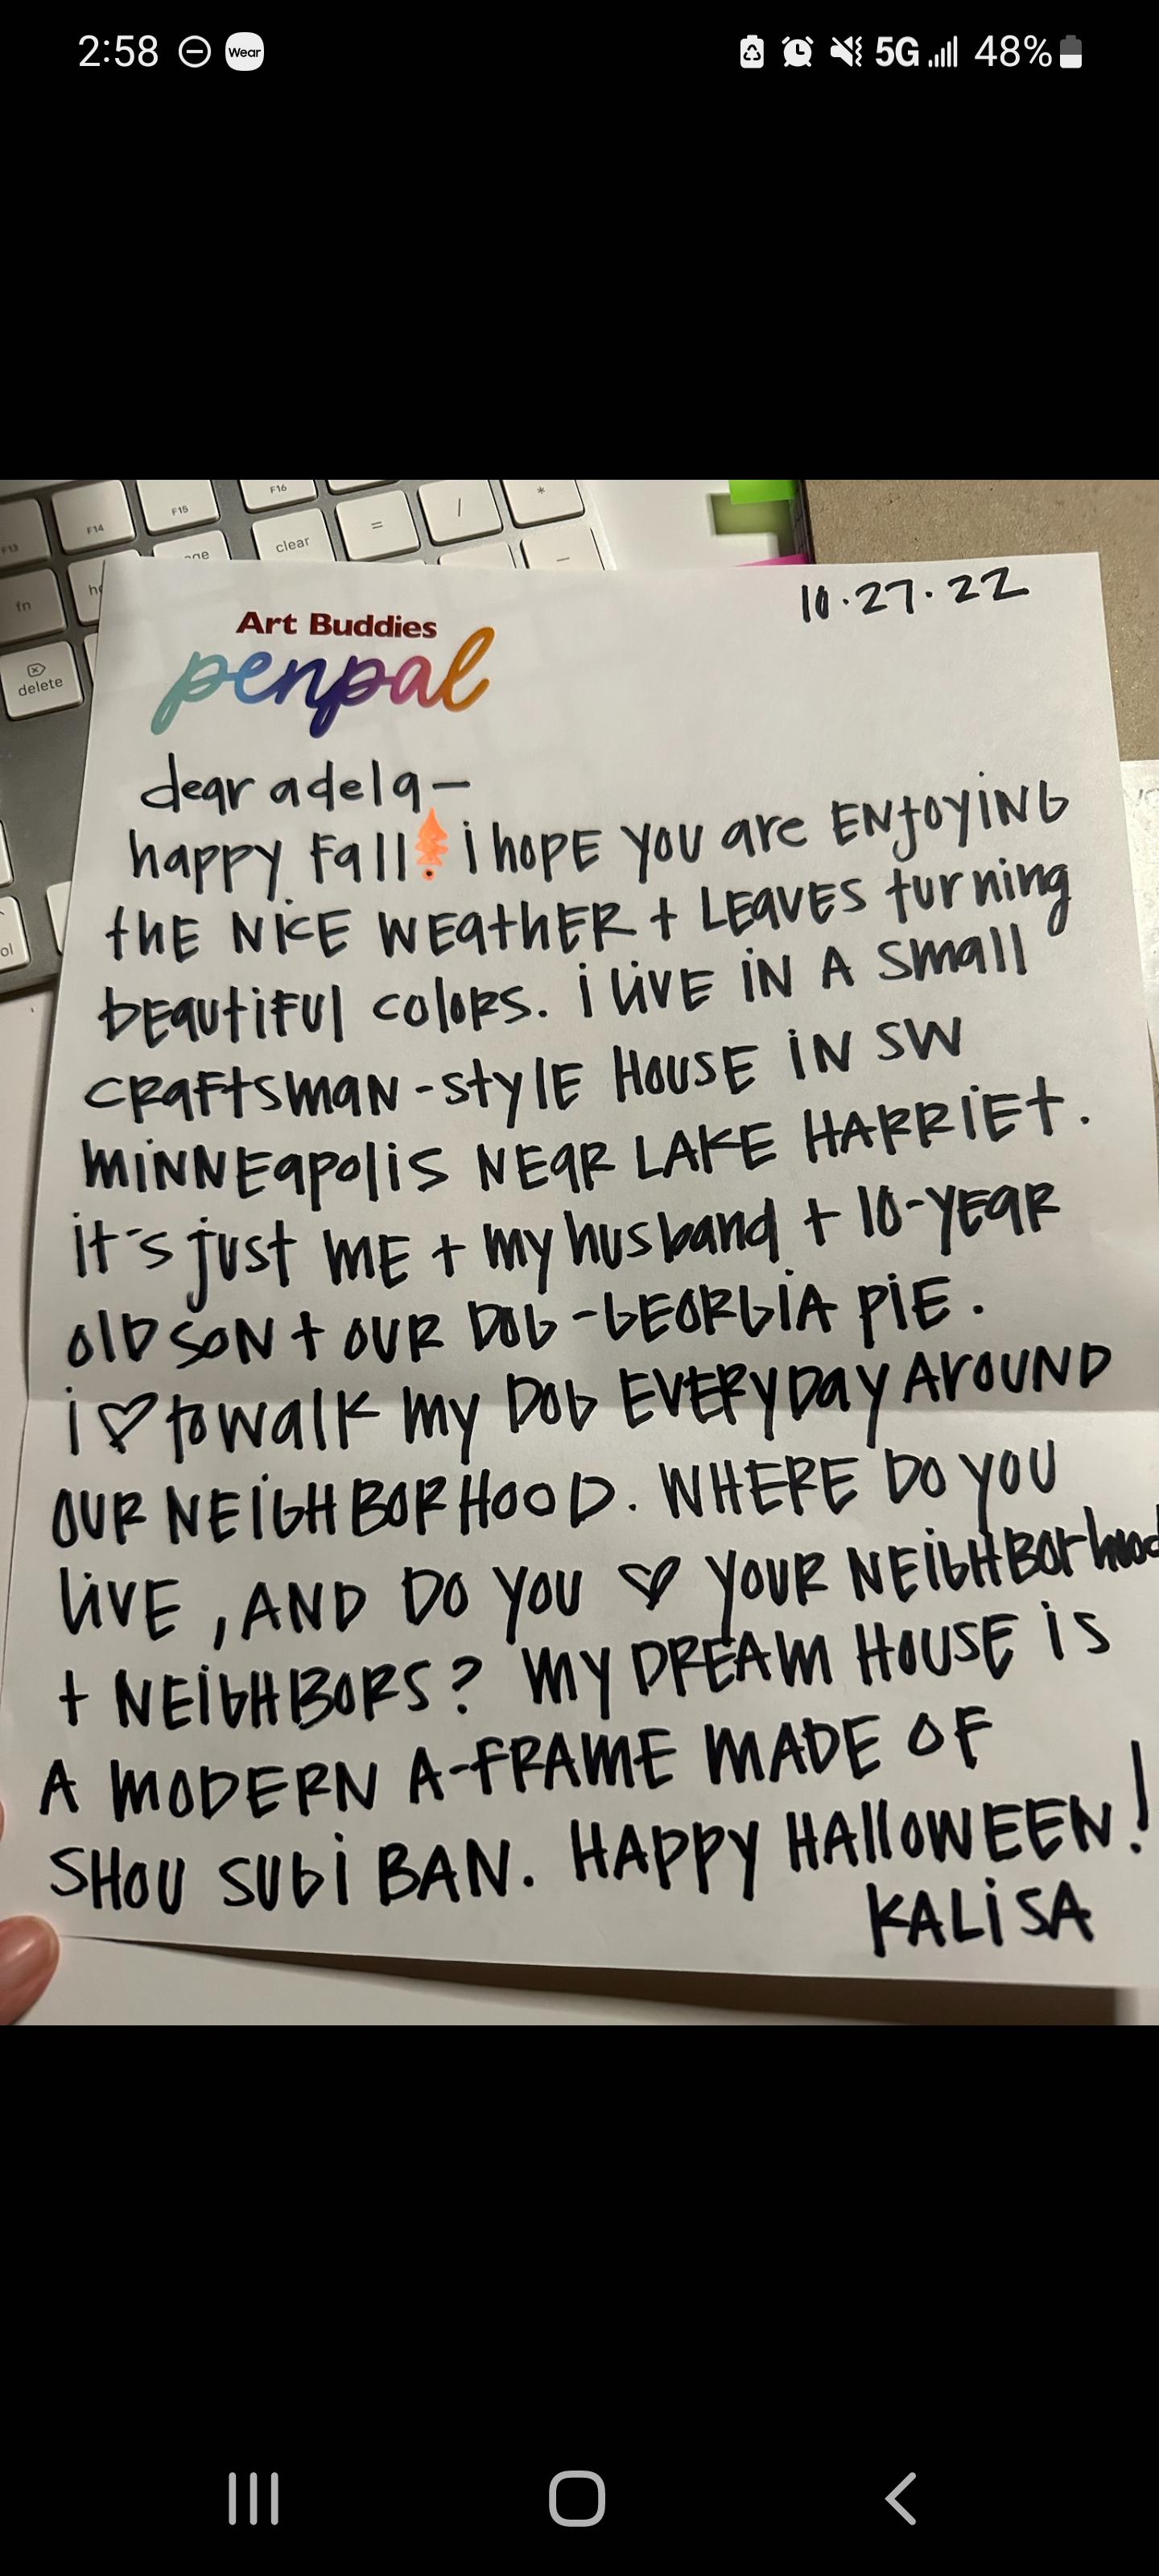 2:58 Wear 5G 48%
F16
F15
F14
F13
* 
/
=
clear
fn
delete
10.27.22
Art Buddies
penpal
dear adela—
happy Fall! i hOPE YOU are ENjOYiNG
thE NiCE WEathER + LEaVES turning
bEautiFUl colORS. i liVE iN A small
CRaFtsmaN-stylE HOUSE iN SW
MiNNEapOliS NEaR LAKE HARRiEt.
it's just ME + my husband + 10-YEaR
OlD SON + OUR DOG - GEORGiA PiE.
i ♡ to walk my DOG EVERYDay ArOUND
OUR NEiGHBORHOOD. WHERE DO YOU
liVE, AND DO YOU ♡ YOUR NEiGHBOrhood
+ NEiGHBORS? MY DREAM HOUSE iS
A MODERN A-FRAME MADE OF
SHOU SUGi BAN. HAPPY HAllOWEEN!
KALiSA